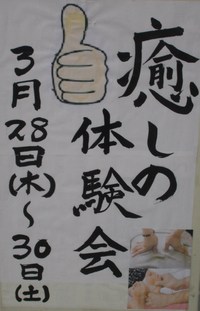 癒しの
体験会
3月28日(木)～30日(土)